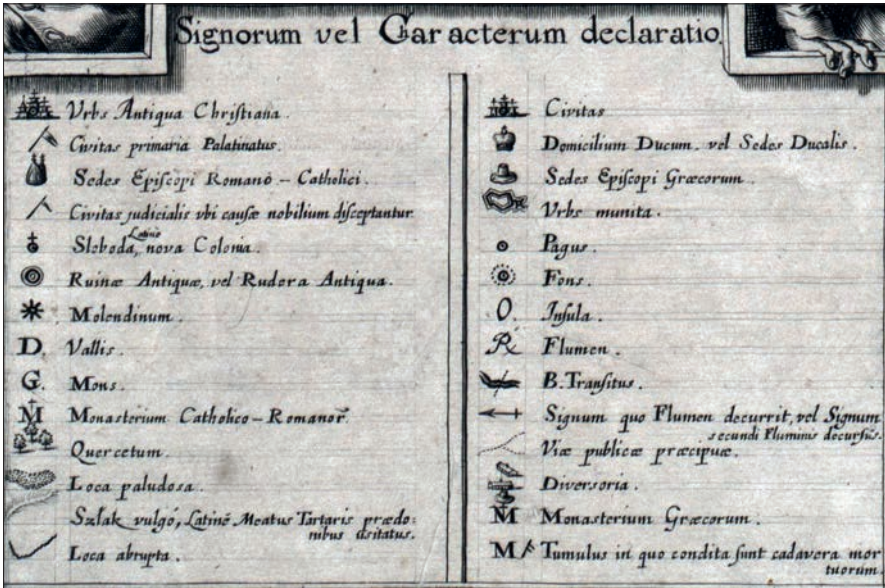 Signorum vel Characterum declaratio.
Vrbs Antiqua Chriſtiana.
Civitas primaria Palatinatus.
Sedes Epiſcopi Romanò-Catholici.
Civitas judicialis vbi cauſæ nobilium diſceptantur
Latinè
Sloboda, nova Colonia.
Ruinæ Antiquæ, vel Rudera Antiqua.
Molendinum.
D. Vallis.
G. Mons.
M Monasterium Catholico-Romanor̃.
Quercetum.
Loca paludosa.
Szłak vulgó, Latinè Meatus Tartaris prædo=
nibus usitatus.
Loca abrupta.
Civitas
Domicilium Ducum. vel Sedes Ducalis.
Sedes Epiſcopi Græcorum.
Vrbs munita.
Pagus.
Fons.
O. Inſula.
R Flumen.
B. Tranſitus.
Signum quo Flumen decurrit, vel Signum
secundi Fluminis decurſus.
Viæ publicæ præcipuæ.
Diversoria.
M Monasterium Græcorum.
M Tumulus in quo condita ſunt cadavera mor
tuorum.